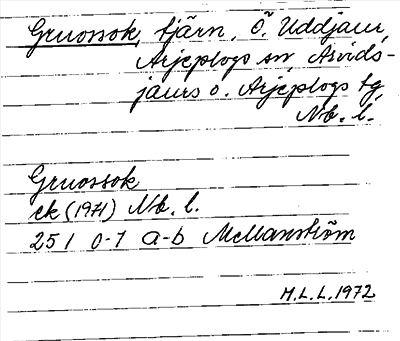 Gruossok, tjärn, Ö. Uddjaur,
Arjeplogs sn, Arvids-
jaurs o. Arjeplogs tg,
Nb. l.
Gruossok
ek (1971) Nb. l.
25 I 0-1 a-b McManström
H.L.L. 1972